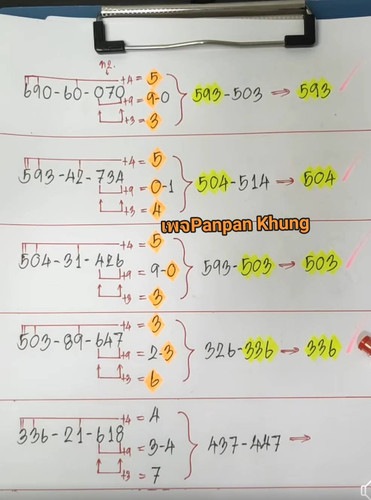 +4 = 5
690-60-070 +9 = 9-0 593-503 → 593
+3 = 3
+4 = 5
593-42-734 +9 = 0-1 504-514 → 504
+3 = 4
เพจPanpan Khung
+4 = 5
504-31-426 +9 = 9-0 593-503 → 503
+3 = 3
+4 = 3
503-89-647 +9 = 2-3 326-336 → 336
+3 = 6
+4 = 4
336-21-618 +9 = 3-4 437-447 →
+3 = 7